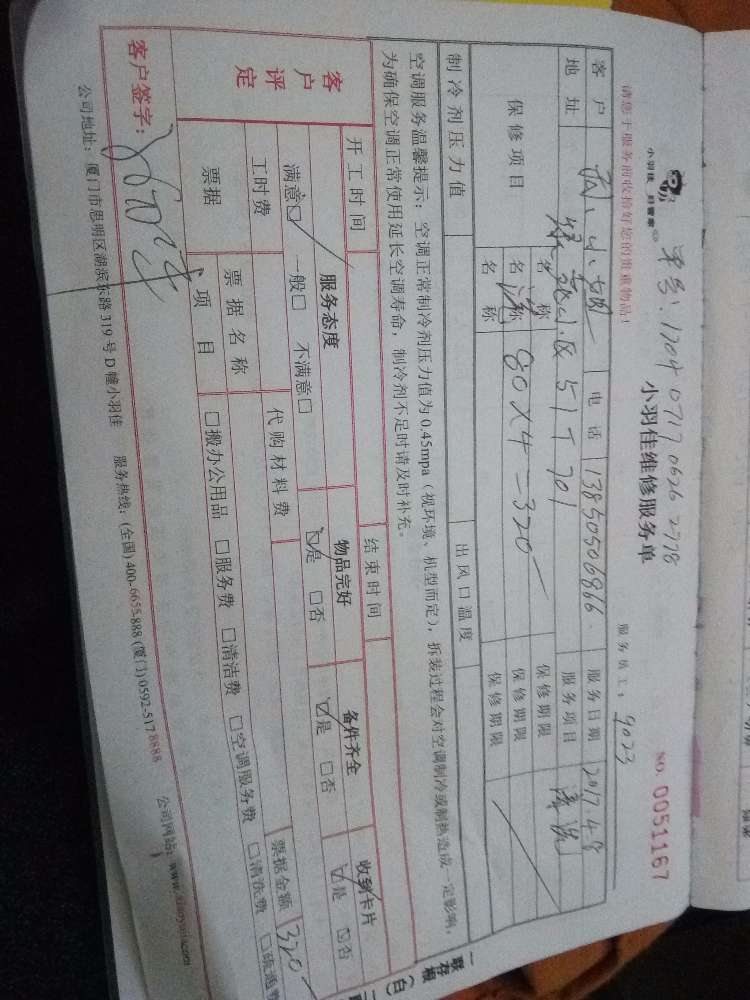 小羽佳 好管家
单号:1204 0717 0626 2778
小羽佳维修服务单
NO. 0051167
请您于服务前收拾好您的贵重物品!
服务员工: 9023
客户 小姐 电话 13850506866 服务日期 2017.4.8
地址 小区 51-701 服务项目 清洗
保修项目 名称 保修期限
名称 80×4=320 保修期限
名称 保修期限
制冷剂压力值 出风口温度
空调服务温馨提示:空调正常制冷剂压力值为0.45mpa(视环境、机型而定),拆装过程会对空调制冷或制热造成一定影响,
为确保空调正常使用延长空调寿命,制冷剂不足时请及时补充。
开工时间 结束时间
客户评定 服务态度 物品完好 备件齐全 收到卡片
满意☑ 一般□ 不满意□ ☑是 □否 ☑是 □否 ☑是 □否
工时费 代购材料费 票据金额 320
票据 票据名称
项目 □搬办公用品 □服务费 □清洁费 □空调服务费 □清洗费 □疏通费
客户签字:
公司地址:厦门市思明区湖滨东路319号D幢小羽佳 服务热线:(全国)400-6655-888 (厦门)0592-517 8888 公司网站:www.xiaoyujia.com